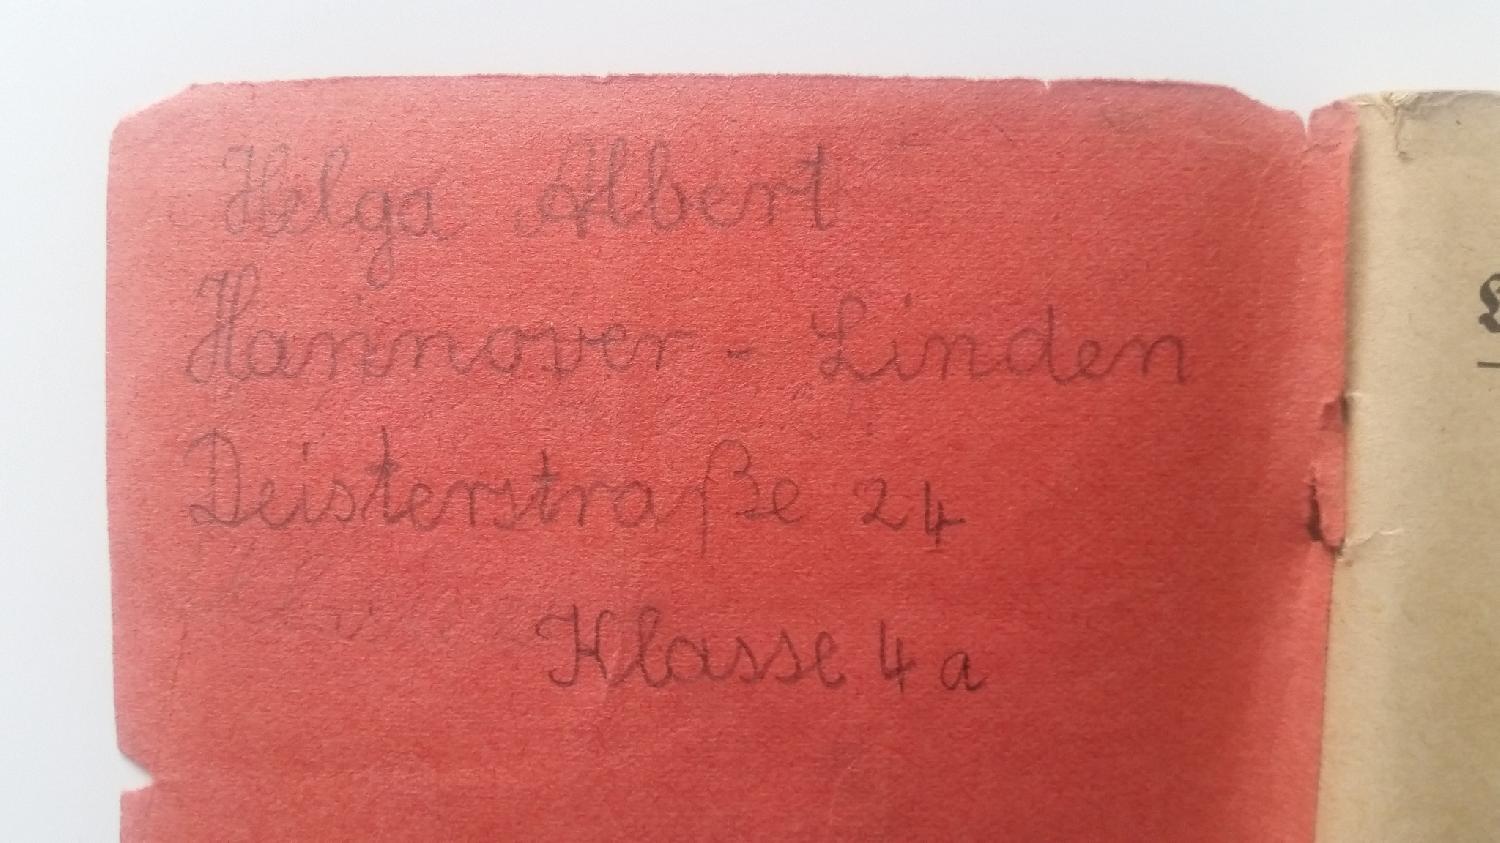 Helga Albert
Hannover - Linden
Deisterstraße 24
Klasse 4a